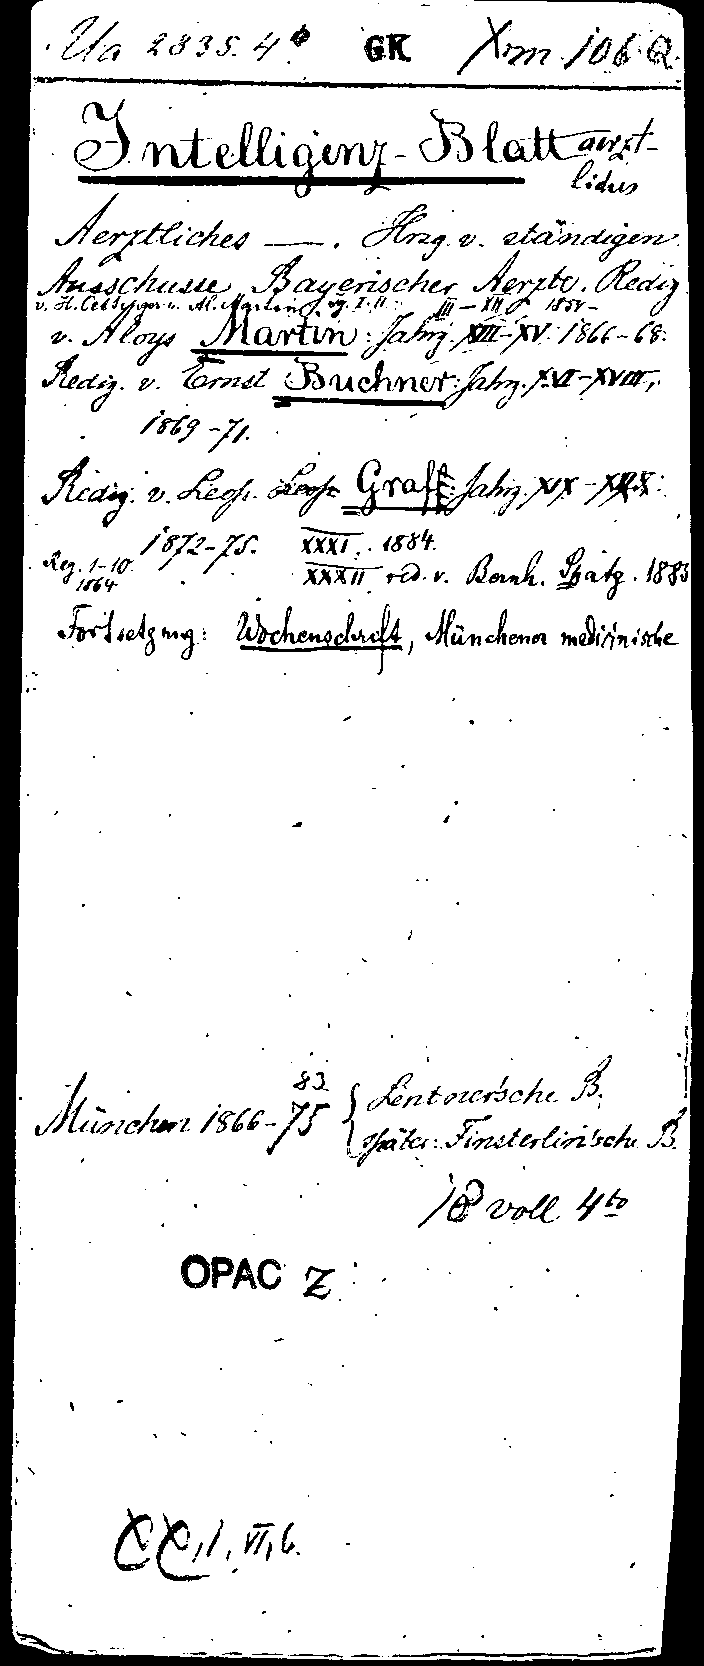 Ua 2835. 4° GK Xm 106 Q.
Intelligenz-Blatt aerzt-
liches
Aerztliches —. Hrsg. v. ständigen
Ausschusse Bayerischer Aerzte. Redig.
v. H. Oettinger u. Al. Martin Jg. I. II III–XII 1854–
v. Aloys Martin: Jahrg. XIII–XV. 1866–68.
Redig. v. Ernst Buchner: Jahrg. XVI–XVIII,
1869–71.
Redig. v. Leop. Graff: Jahrg. XIX–
1872–75. XXXI. 1884.
Reg. 1–10. 1864
XXXII red. v. Bernh. Spatz. 1885
Fortsetzung: Wochenschrift, Münchener medicinische
83.
München 1866–75 { Lentner'sche B.
später: Finsterlin'sche B.
18 voll 4to
OPAC Z
1, VI, 6.